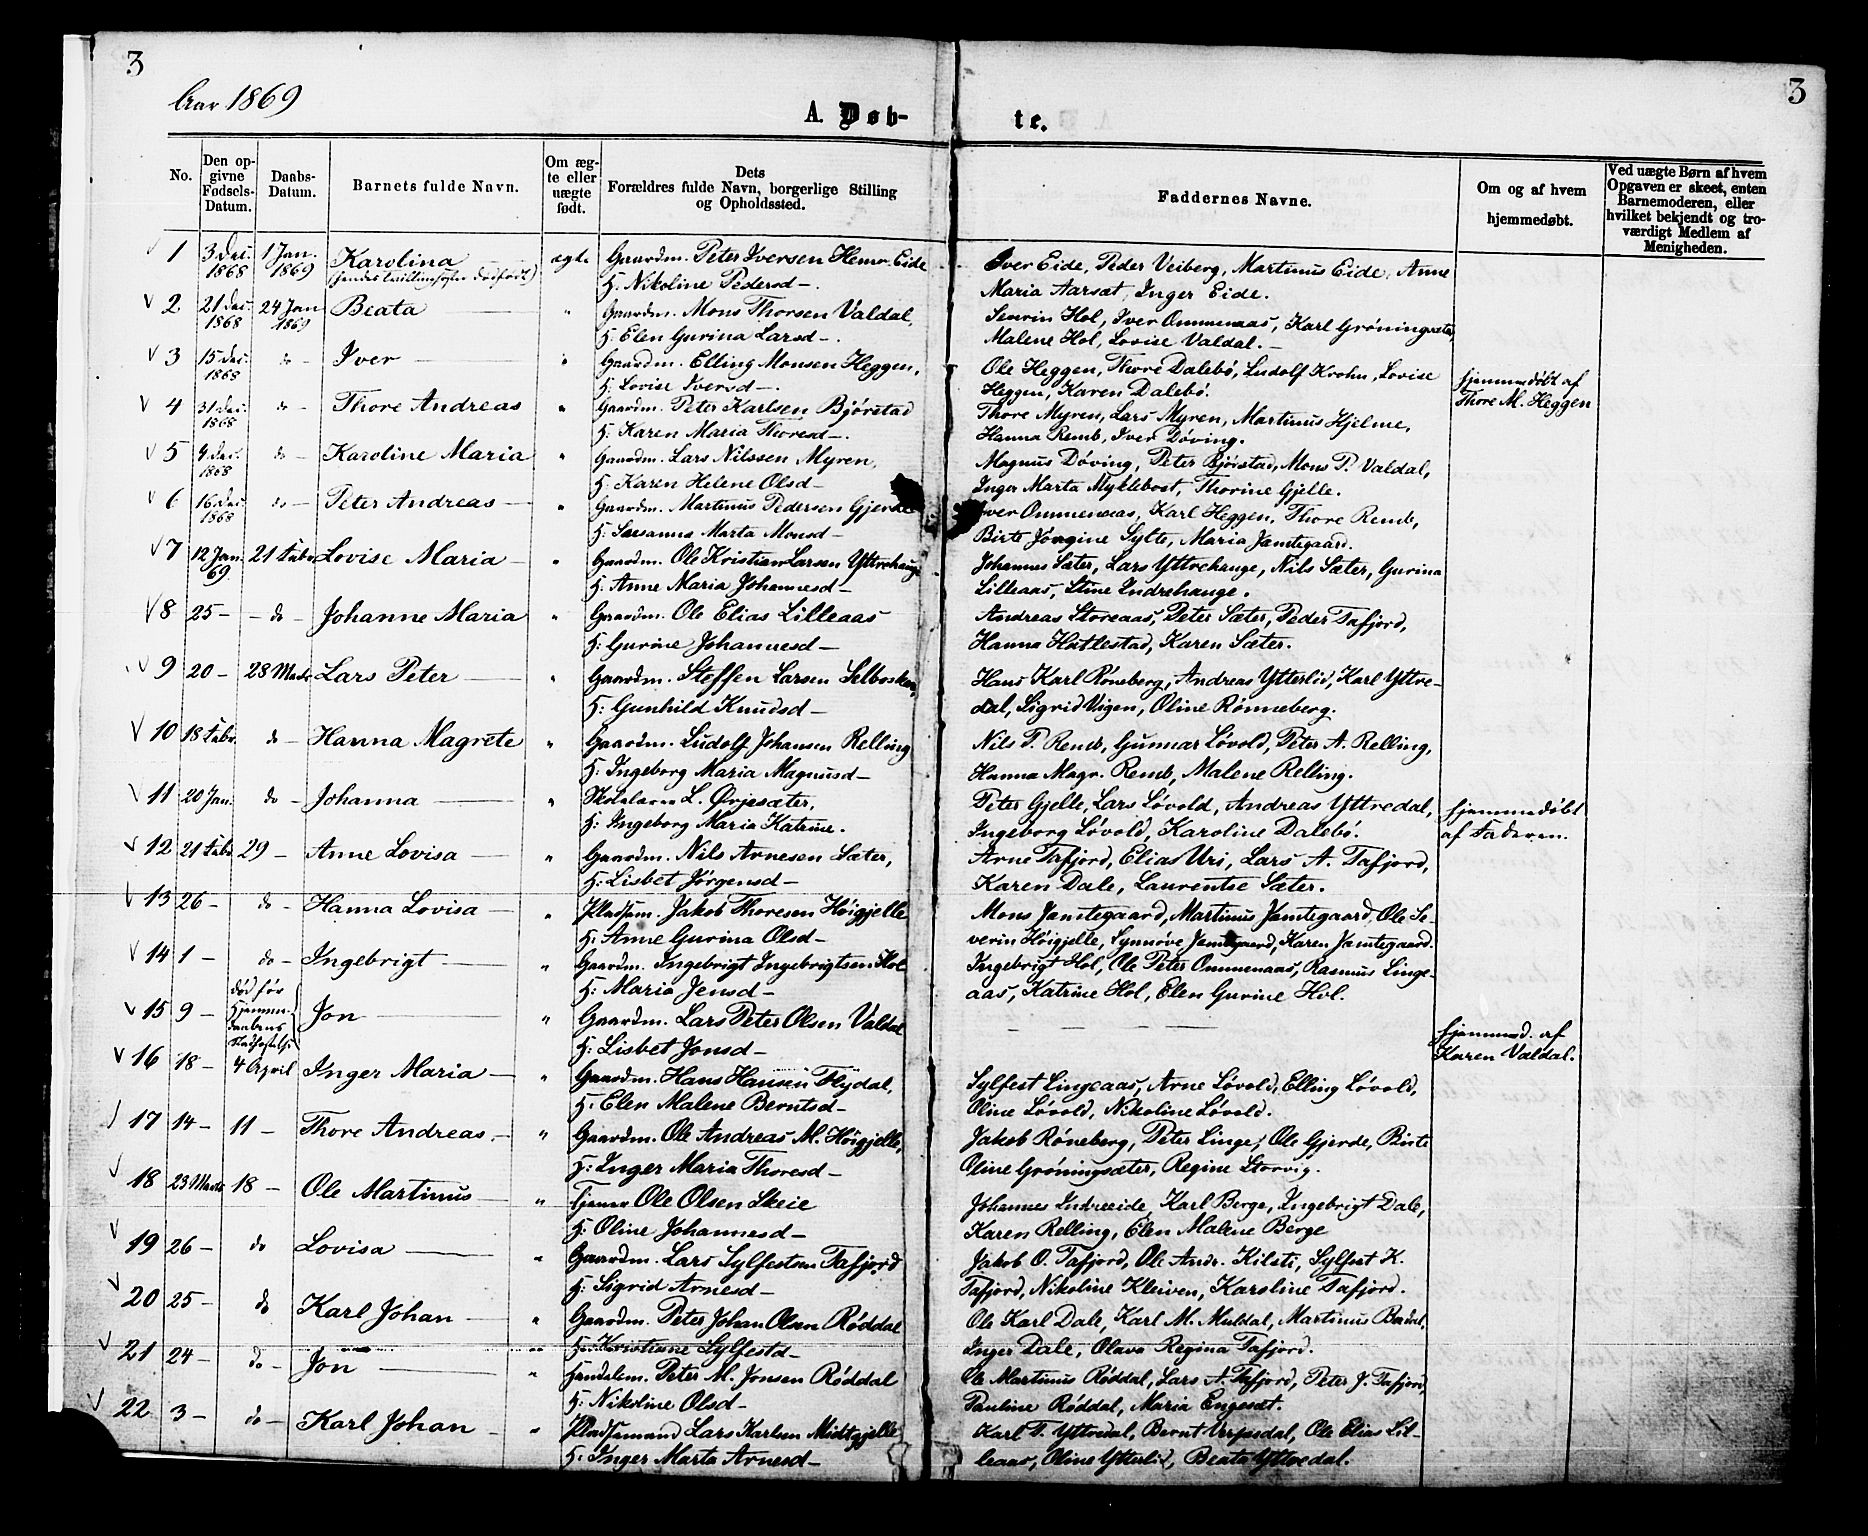 3
3
Aar 1869
A. Døb-
te.
No.
Den op-
givne
Fødsels-
Datum.
Daabs-
Datum.
Barnets fulde Navn.
Om æg-
te eller
uægte
født.
Dets
Forældres fulde Navn, borgerlige Stilling
og Opholdssted.
Faddernes Navne.
Om og af hvem
hjemmedøbt.
Ved uægte Børn af hvem
Opgaven er skeet, enten
Barnemoderen, eller
hvilket bekjendt og tro-
værdigt Medlem af
Menigheden.
1 3 Dec. 1868 1 Jan. 1869 Karolina ægte Gaardm. Peter Iversen Eide Iver Eide, Peder Veiberg, Martinus Eide, Anne
H. Nikoline Pedersd – . Maria Aarsæt, Inger Eide.
2 21 Dec. 1868 24 Jan 1869 Beata " Gaardm. Mons Thorsen Valdal, Severin Hol, Iver Ommenaas, Karl Grøningsæter,
H. Elen Gurina Larsd – . Malene Hol, Lovise Valdal. –
3 15 Dec. 1868 do – Iver " Gaardm. Elling Monsen Heggen, Ole Heggen, Thore Dalebø, Ludolf Krohn, Lovise
H. Lovise Iversd – . Heggen, Karen Dalebø. Hjemmedøbt af
4 31 Dec. 1868 do – Thore Andreas " Gaardm. Peter Karlsen Bjørstad Thore Myren, Lars Myren, Martinus Hjelme, Thore M. Heggen
H. Karen Maria Thoresd – . Hanna Remb, Iver Døving.
5 9 Dec. 1868 do – Karoline Maria " Gaardm. Lars Nilssen Myren, Magnus Døving, Peter Bjørstad, Mons P. Valdal,
H. Karen Helene Olsd – Inger Marta Myklebost, Thorine Gjelle.
6 16 Dec. 1868 do – Peter Andreas – " Gaardm. Martinus Pedersen Gjerde Iver Ommenaas, Karl Heggen, Thore Remb,
H: Susanna Marta Monsd – Birte Jørgine Sylte, Maria Jamtegaard.
7 12 Jan 69. 21 Febr Lovise Maria – " Gaardm. Ole Kristian Larsen Yttrehauge Johannes Sæter, Lars Yttrehauge, Nils Sæter, Gurina
H. Anne Maria Johannesd – Lilleaas, Stine Indrehauge.
8 25 – – do – Johanne Maria " Gaardm. Ole Elias Lilleaas Andreas Storeaas, Peter Sæter, Peder Tafjord,
H: Gurine Johannesd – Hanna Hatlestad, Karen Sæter.
9 20 – 28 Marts Lars Peter – " Gaardm. Steffen Larsen Selboskar, Hans Karl Røneberg, Andreas Ytterlid, Karl Yttre-
H: Gunhild Knudsd – dal, Sigrid Vigen, Oline Rønneberg.
10 18 Febr. do – Hanna Magrete " Gaardm. Ludolf Johansen Relling Nils P. Remb, Gunnar Løvold, Peter A. Relling,
H: Ingeborg Maria Magnusd – Hanna Magr. Remb, Malene Relling.
11 20 Jan. do – Johanna – " Skolelærer L. Ørjesæter, Peter Gjelle, Lars Løvold, Andreas Yttredal, Hjemmedøbt
H: Ingeborg Maria Katrine. Ingeborg Løvold, Karoline Dalebø. af Faderen.
12 21 Febr 29 – Anne Lovisa – " Gaardm. Nils Arnesen Sæter, Arne Tafjord, Elias Uri, Lars A. Tafjord,
H: Lisbet Jørgensd – Karen Dale, Laurentse Sæter.
13 26 – do – Hanna Lovisa – " Pladsm. Jakob Thoresen Høigjelle Mons Jamtegaard, Martinus Jamtegaard, Ole Se-
H: Anne Gurina Olsd – verin Høigjelle, Synnøve Jamtegaard, Karen Jamtegaard.
14 1 – do – Ingebrigt – " Gaardm. Ingebrigt Ingebrigtsen Hol Ingebrigt Hol, Ole Peter Ommenaas, Rasmus Linge-
H: Maria Jensd – aas, Katrine Hol, Elen Gurine Hol.
15 9 – død før Hjemme- daabens Stadfæstelse Jon – " Gaardm. Lars Peter Olsen Valdal – – – – Hjemmed. af
H: Lisbet Jonsd – Karen Valdal.
16 18 – 4 April Inger Maria – " Gaardm. Hans Hansen Flydal, Sylfest Lingeaas, Arne Løvold, Elling Løvold,
H. Elen Malene Berntsd – Oline Løvold, Nikoline Løvold.
17 14 – 11 – Thore Andreas – " Gaardm. Ole Andreas M. Høigjelle, Jakob Røneberg, Peter Linge, Ole Gjerde, Birte
H: Inger Maria Thoresd – Oline Grøningsæter, Regine Storvig.
18 23 Marts 18 – Ole Martinus – " Tjener Ole Olsen Skeie Johannes Indreeide, Karl Berge, Ingebrigt Dale,
H: Oline Johannesd – Karen Relling, Elen Malene Berge
19 26 – do Lovisa – " Gaardm. Lars Sylfestsen Tafjord Jakob O. Tafjord, Ole Andr. Kilsti, Sylfest K.
H: Sigrid Arnesd – Tafjord, Nikoline Kleiven, Karoline Tafjord.
20 25 – do Karl Johan – " Gaardm. Peter Johan Olsen Røddal Ole Karl Dale, Karl M. Muldal, Martinus
H. Kristiane Sylfestd – Inger Dale, Olava Regina Tafjord.
21 24 – do – Jon – " Handelsm. Peter M. Jonsen Røddal Ole Martinus Røddal, Lars A. Tafjord, Peter J. Tafjord,
H: Nikoline Olsd – Pauline Røddal, Maria Engeset.
22 3 – do – Karl Johan – " Pladsmand Lars Karlsen Midtgjelle Karl P. Yttredal, Bernt Verpesdal, Ole Elias Lil-
H: Inger Marta Arnesd – leaas, Oline Ytterlid, Beata Yttredal.